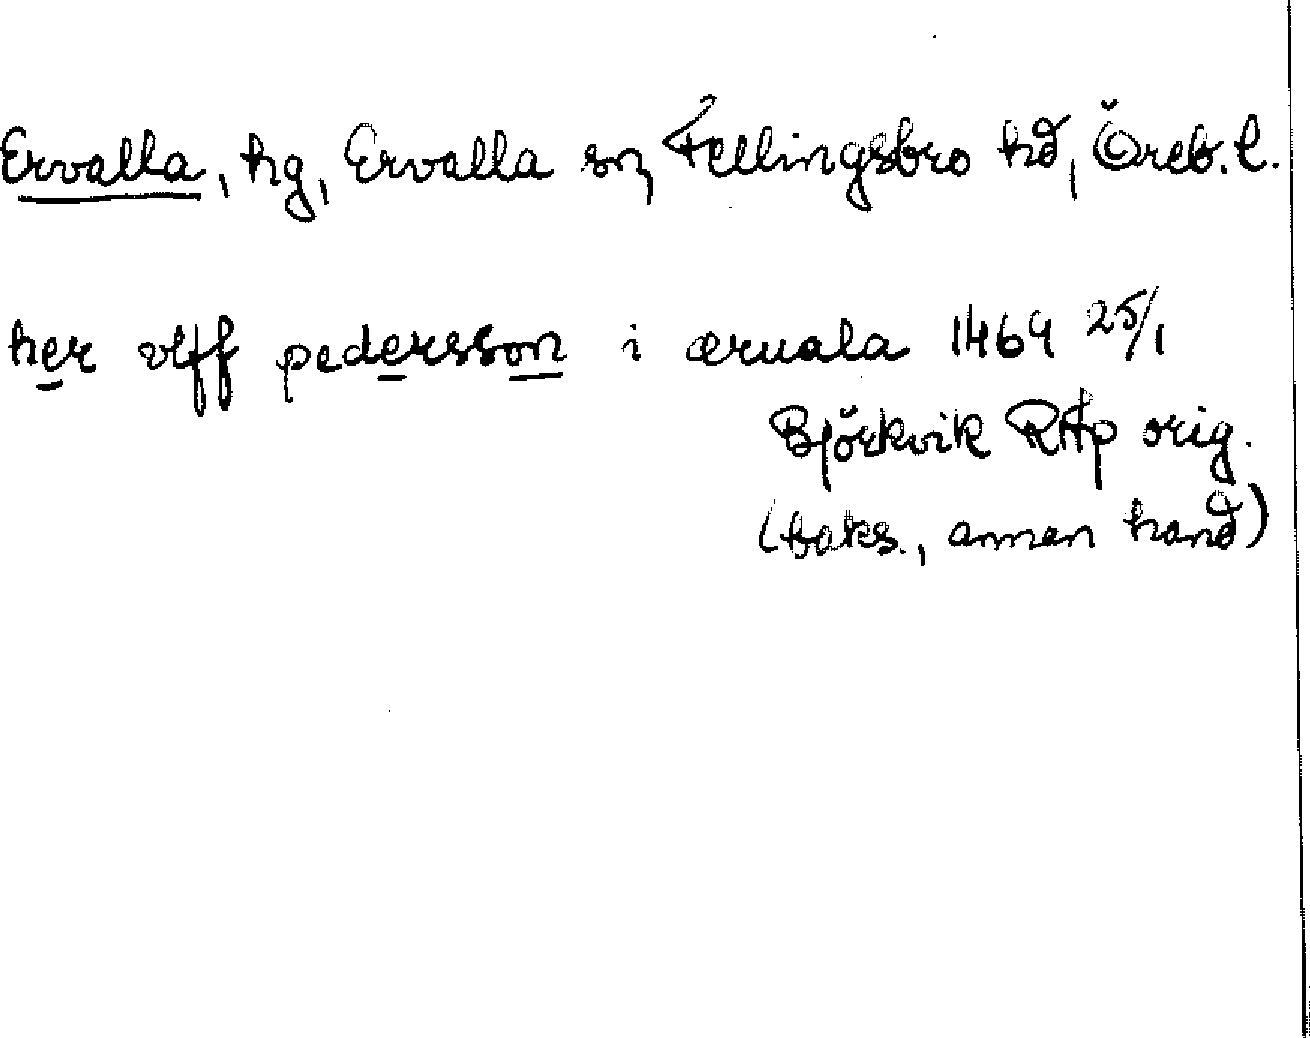 Ervalla, hg, Ervalla sn, Fellingsbro hd, Öreb. l.
her vlff pedersson i æruala 1469 25/1
Björkvik RAp orig.
(baks., annan hand)